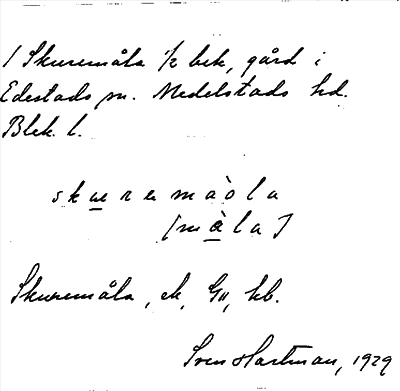 1 Skuremåla 1/2 bek, gård i
Edestads sn. Medelstads hd.
Blek. l.
skuremåola
[màla]
Skuremåla, ek, Gu, hb.
Sven Hartman, 1929